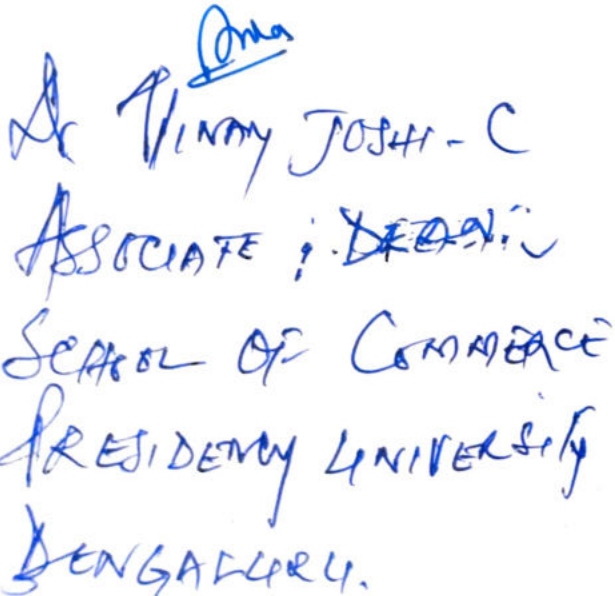 Dr VINAY JOSHI - C
ASSOCIATE ; DEAN ;
SCHOOL OF COMMERCE
PRESIDENCY UNIVERSITY
BENGALURU.